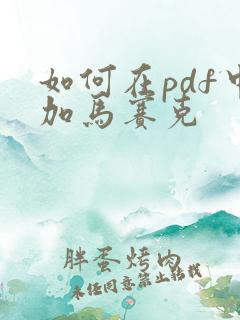 如何在pdf中
加馬賽克
胖蛋烤肉
未经同意禁止转载